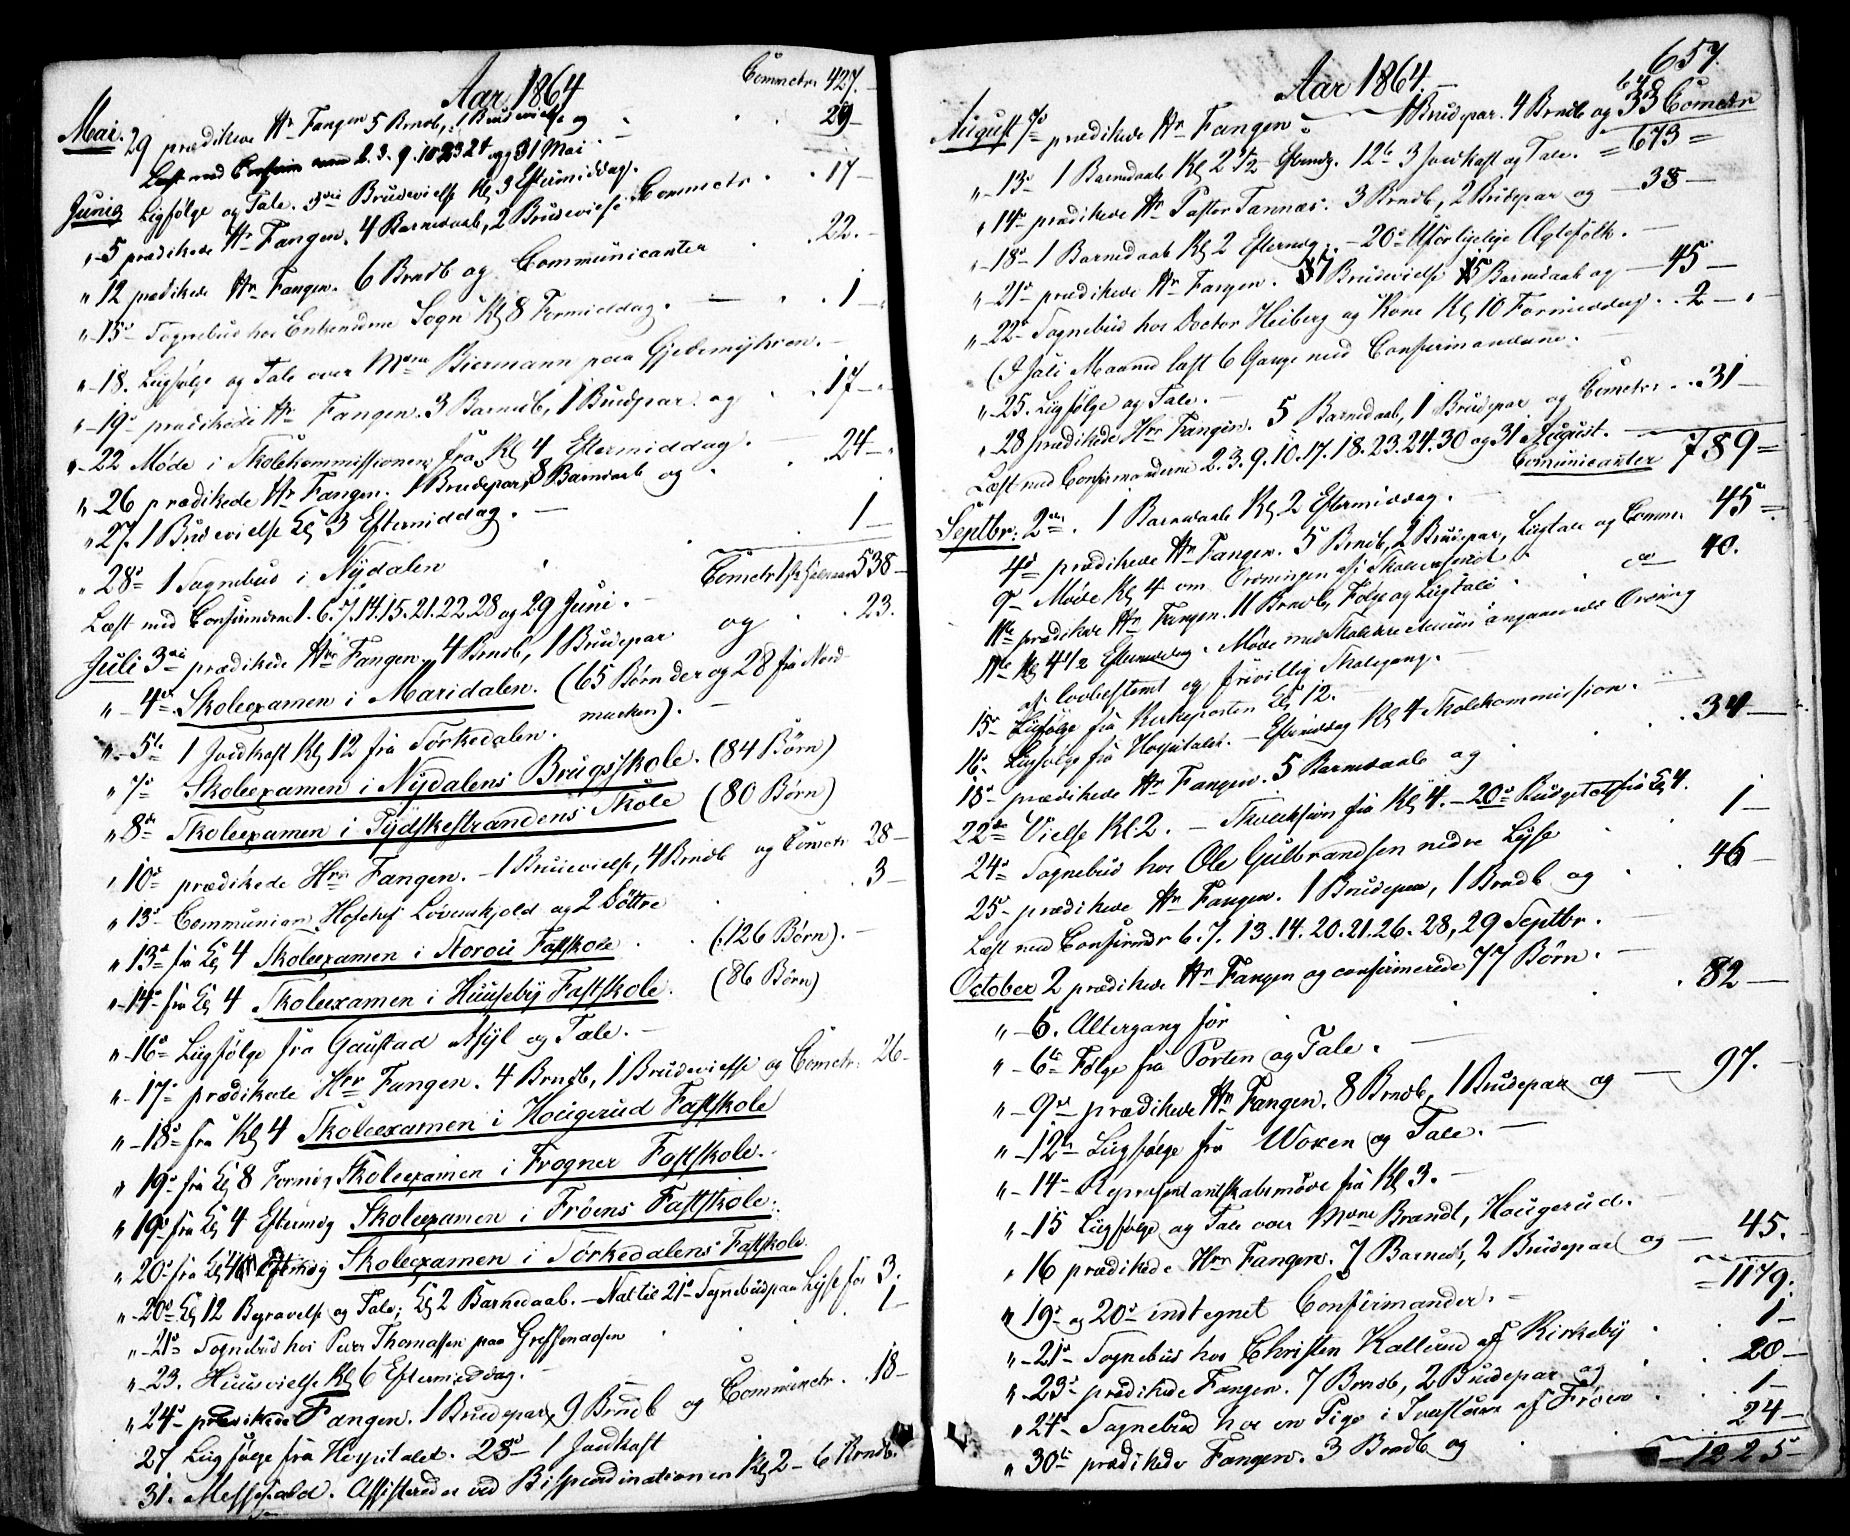 Aar 1864
Commctr 427.
Mai. 29 prædikede Hr Fangen 5 Brndb, 1 Brudevielse og 29
Læst med Confirm 2. 3. 9. 10 23 24 og 31 Mai
Junio Liigfølge og Tale. 3die Brudevielse Kl 3 Eftermiddag.
" 5 prædikede Hr Fangen. 4 Barnedaab, 2 Brudevielse Commctr 17
" 12 prædikede Hr Fangen. 6 Brndb og Communicanter 22.
" 15 Sognebud hos Sogn Kl 8 Formiddag. 1
" 18. Liigfølge og Tale over Mdm Biermann paa Gjedemyhren.
" 19 prædikede Hr Fangen. 3 Barndb, 1 Brudpar og 17
" 22 Møde i Skolekommissionen fra Kl 4 Eftermiddag.
" 26 prædikede Hr Fangen. 1 Brudepar, 8 Barndaab og 24
" 27. 1 Brudevielse Kl 3 Eftermiddag.
" 28 1 Sognebud i Nydalen 1
Commctr 538
Læst med Confirmdrne 1. 6. 7. 14. 15. 21. 22. 28 og 29 Juni.
Juli 3die prædikede Hrr Fangen 4 Brndb, 1 Brudepar og 23.
" 4de Skoleexamen i Maridalen. (65 Børn der og 28 fra Nord-
marken).
" 5te 1 Jordkast Kl 12 fra Sørkedalen.
" 7 Skoleexamen i Nydalens Brugsskole. (84 Børn)
" 8de Skoleexamen i Tydskestrandens Skole (80 Børn)
" 10 prædikede Hrr Fangen. 1 Brudevielse, 4 Brndb og Comctr 28
" 13 Communion Hofchef Løvenskjold og 2 Döttre 3
" 13 fra Kl 4 Skoleexamen i Storou Fastskole (126 Børn).
" 14 fra Kl 4 Skoleexamen i Huuseby Fastskole. (86 Børn)
" 16 Liigfølge fra Gaustad Asyl og Tale.
" 17 prædikede Hrr Fangen. 4 Brndb, 1 Brudevielse og Comctr. 26
" 18 fra Kl 4 Skoleexamen i Hougerud Fastskole
" 19 fra Kl 8 Formdg Skoleexamen i Frogner Fastskole.
" 19 fra Kl 4 Eftermdg Skoleexamen i Frøens Fastskole.
" 20 fra Kl 4 Eftmdg Skoleexamen i Sørkedalens Fastskole
" 20 Kl 12 Begravelse og Tale; Kl 2 Barnedaab. Nat til 21 Sognebud paa Lysse for 3.
" 21 Sognebud hos Peder Thomassen paa Grefsenaasen 1
" 23. Huusvielse Kl 6 Eftermiddag.
" 24 prædikede Fangen. 1 Brudepar, 9 Brndb og Communctr. 18
27 Liigfølge fra Hospitalet. 28 1 Jordkast
31. Messefald. Assisterede ved Bispeordinationen Kl 2 6 Brndb.
Aar 1864.
657.
August 7 prædikede Hr Fangen 1 Brudepar. 4 Brndb og 33 Comctr
" 13 1 Barnedaab Kl 2 1/2 Eftmdg. 12te 3 Jordkast og Tale. = 673 =
" 14 prædikede Hr Pastor Tannæs. 3 Brndb, 2 Brudepar og 38
" 18 1 Barnedaab Kl 2 Eftermdg. 20 Uforligelige Ægtefolk.
" 21 prædikede Hr Fangen. Brudevielse 5 Barnedaab og 45
" 22 Sognebud hos Doctor Heiberg og Kone Kl 10 Formiddag. 2
(I Juli Maaned læst 6 Gange med Confirmanderne.
" 25. Liigfølge og Tale.
" 28 prædikede Hrr Fangen. 5 Barnedaab, 1 Brudepar og Comctr 31
Læst med Confirmanderne 2. 3. 9. 10. 17. 18. 23. 24. 30 og 31 August.
Comunicanter 789
Septbr: 2den. 1 Barnedaab Kl 2 Eftermiddag.
4 prædikede Hr Fangen. 5 Brndb, 2 Brudepar, Liigtale og Comm. 45
9 Møde Kl 4 om Ordningen af Skolevæsenet
11te prædikede Hr Fangen. 11 Brndb, Følge og Liigtale 40.
11te Kl 4 1/2 Eftermiddag. Møde med angaaende Ordning
af lovbestemt og frivillig Skolegang.
15 Liigfølge fra Kirkeporten Kl 12.
16. Liigfølge fra Hospitalet. Eftermiddag Kl 4 Skolekommission.
18 prædikede Hr Fangen. 5 Barnedaab og 34
22de Vielse Kl 2. fra Kl 4. 20 fra Kl 4.
24 Sognebud hos Ole Gulbrandsen nedre Lysse 1
25 prædikede Hr Fangen. 1 Brudepar, 1 Brndb og 46
Læst med Confirmdr 6. 7. 13. 14. 20. 21. 26. 28, 29 Septbr.
October 2 prædikede Hr Fangen og confirmerede 77 Børn.
" 6. Altergang for 82
" 6te Følge fra Porten og Tale.
" 9de prædikede Hr Fangen. 8 Brndb, 1 Brudepar og 97.
" 12te Liigfølge fra Woxen og Tale.
" 14 Representantskabsmøde fra Kl 3.
" 15 Liigfølge og Tale over Mdme Brandt, Hougerud.
" 16 prædikede Hrr Fangen. 7 Barnedb, 2 Brudepar og 45.
= 1179.
" 19 og 20 indtegnet Confirmander.
" 21 Sognebud hos Christen Kallerud af Kirkeby 1
" 23 prædikede Fangen. 7 Brndb, 2 Brudepar og 20
" 24 Sognebud hos en Pige i af Frøen 1
" 30te prædikede Fangen. 3 Brndb og 24
1225